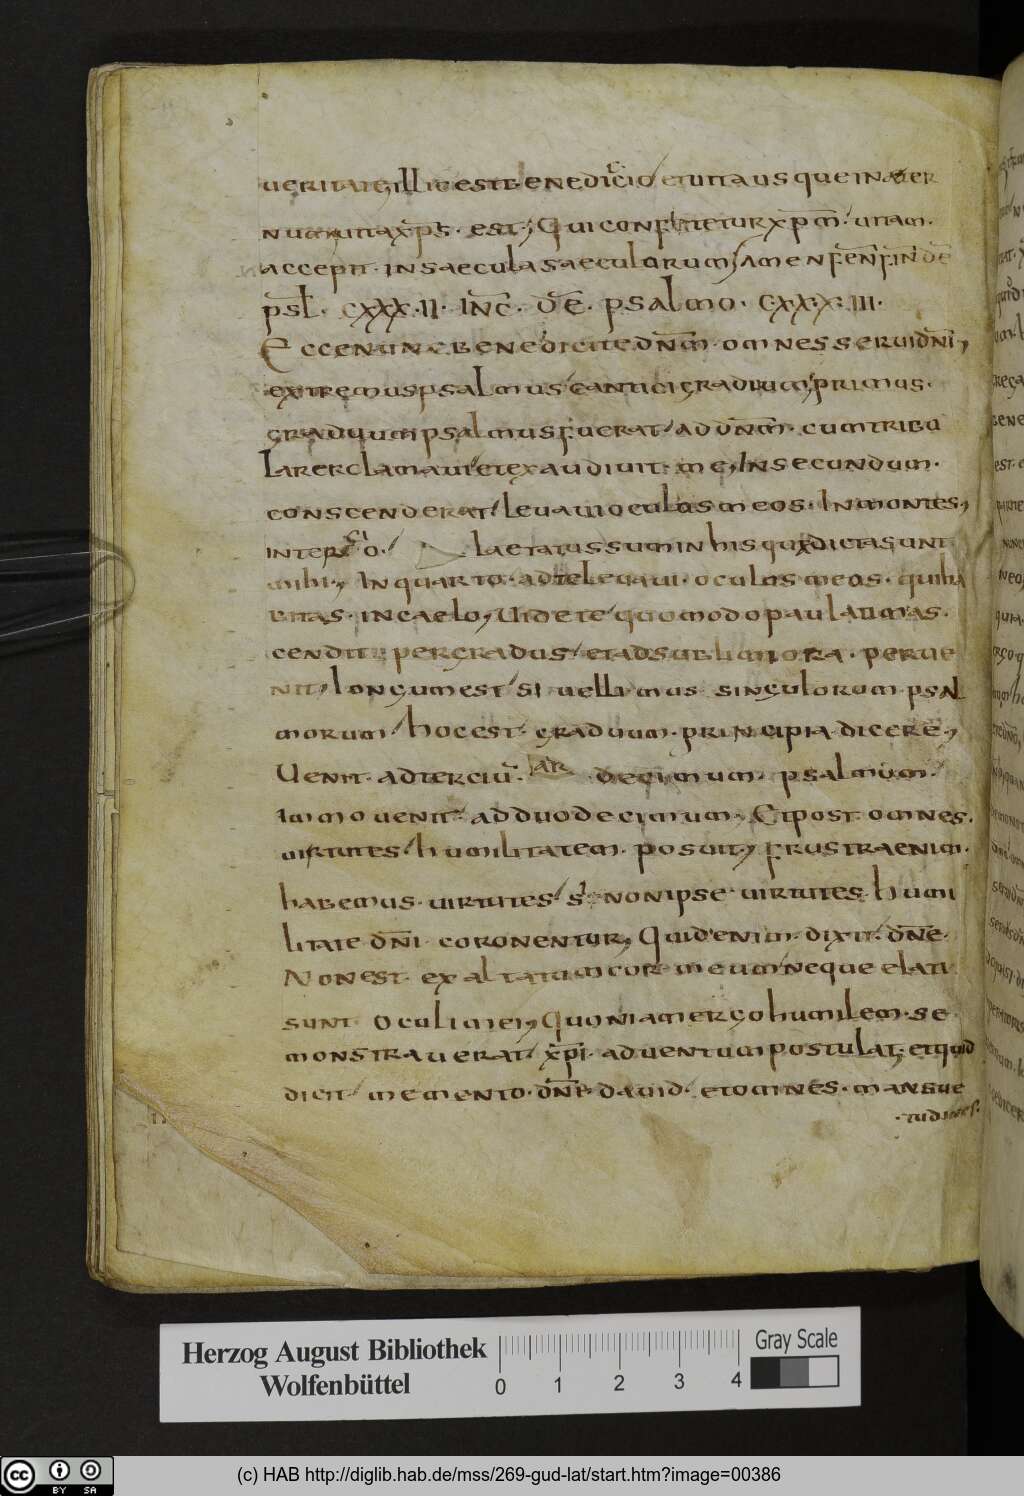 ueritas illic est benedictio et uita usque in aeter
num uita xp̄s est, Qui confitetur xp̄m uitam
accepit in saecula saeculorum, Amen
psl̄. CXXX.II. INC̄. DĒ. psalmo. C.X.X.X.III.
Ecce nunc benedicite dn̄m omnes serui dn̄i,
extremus psalmus cantici graduum primus
graduum psalmus fuerat ad dn̄m cum tribu
larer clamaui et exaudiuit me, In secundum
conscenderat leuaui oculos meos In montes,
in tertio. Laetatus sum in his quae dicta sunt
mihi, In quarto ad te leuaui oculos meos qui ha
bitas in caelo, Uidete quomodo paulatim as
cendit per gradus et ad sublimiora perue
nit, longum est si uellimus singulorum psal
morum hoc est graduum principia dicere,
Uenit ad terciū decimum psalmum
immo uenit ad duodecimum, Et post omnes
uirtutes humilitatem posuit, frustra enim
habemus uirtutes s; non ipse uirtutes humi
litate dn̄i coronentur, Quid enim dixit dn̄e
Non est exaltatum cor meum neque elati
sunt oculi mei, Quoniam ergo humilem se
monstrauerat xp̄i aduentum postulat, et quid
dicit memento dn̄e dauid et omnes mansue
tudines
Herzog August Bibliothek
Wolfenbüttel
0 1 2 3 4
Gray Scale
cc BY SA
(c) HAB http://diglib.hab.de/mss/269-gud-lat/start.htm?image=00386